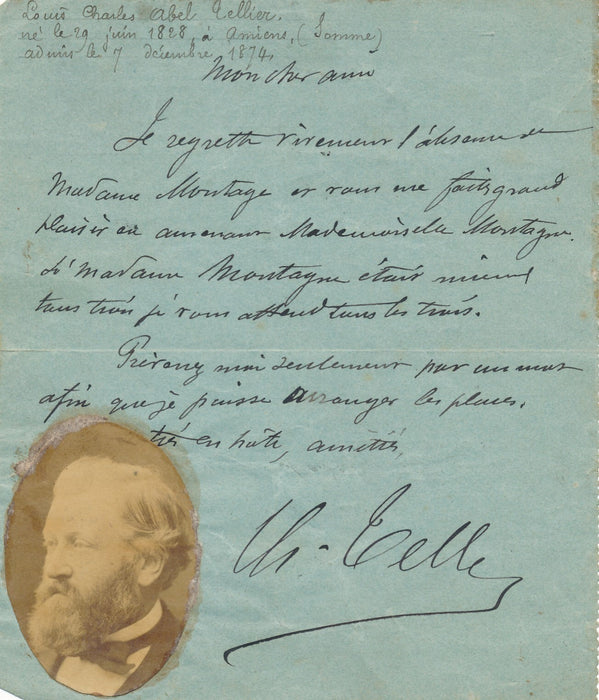 Louis Charles Abel Tellier.
né le 29 juin 1828, à Amiens, (Somme)
admis le 7 décembre 1874.
Mon cher ami
Je regrette vivement l'absence de
Madame Montagne et vous me faites grand
plaisir en amenant Mademoiselle Montagne.
Si madame Montagne était mieux
tous trois je vous attend tous les trois.
Prévenez moi seulement par un mot
afin que je puisse arranger les places.
très en hâte, amitiés,
Ch. Tellier